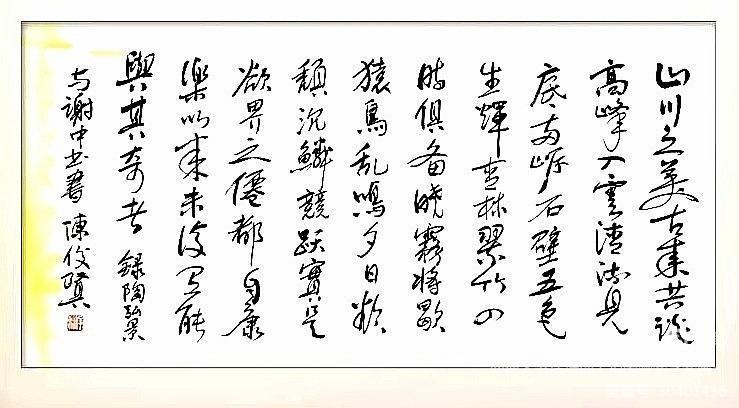 山川之美古來共談
高峰入雲清流見
底兩岸石壁五色
交輝青林翠竹四
時俱备曉霧將歇
猿鳥乱鳴夕日欲
頹沉鱗競躍實是
欲界之僊都自康
樂以來未復有能
與其奇者 録陶弘景
与謝中书書 陳俊